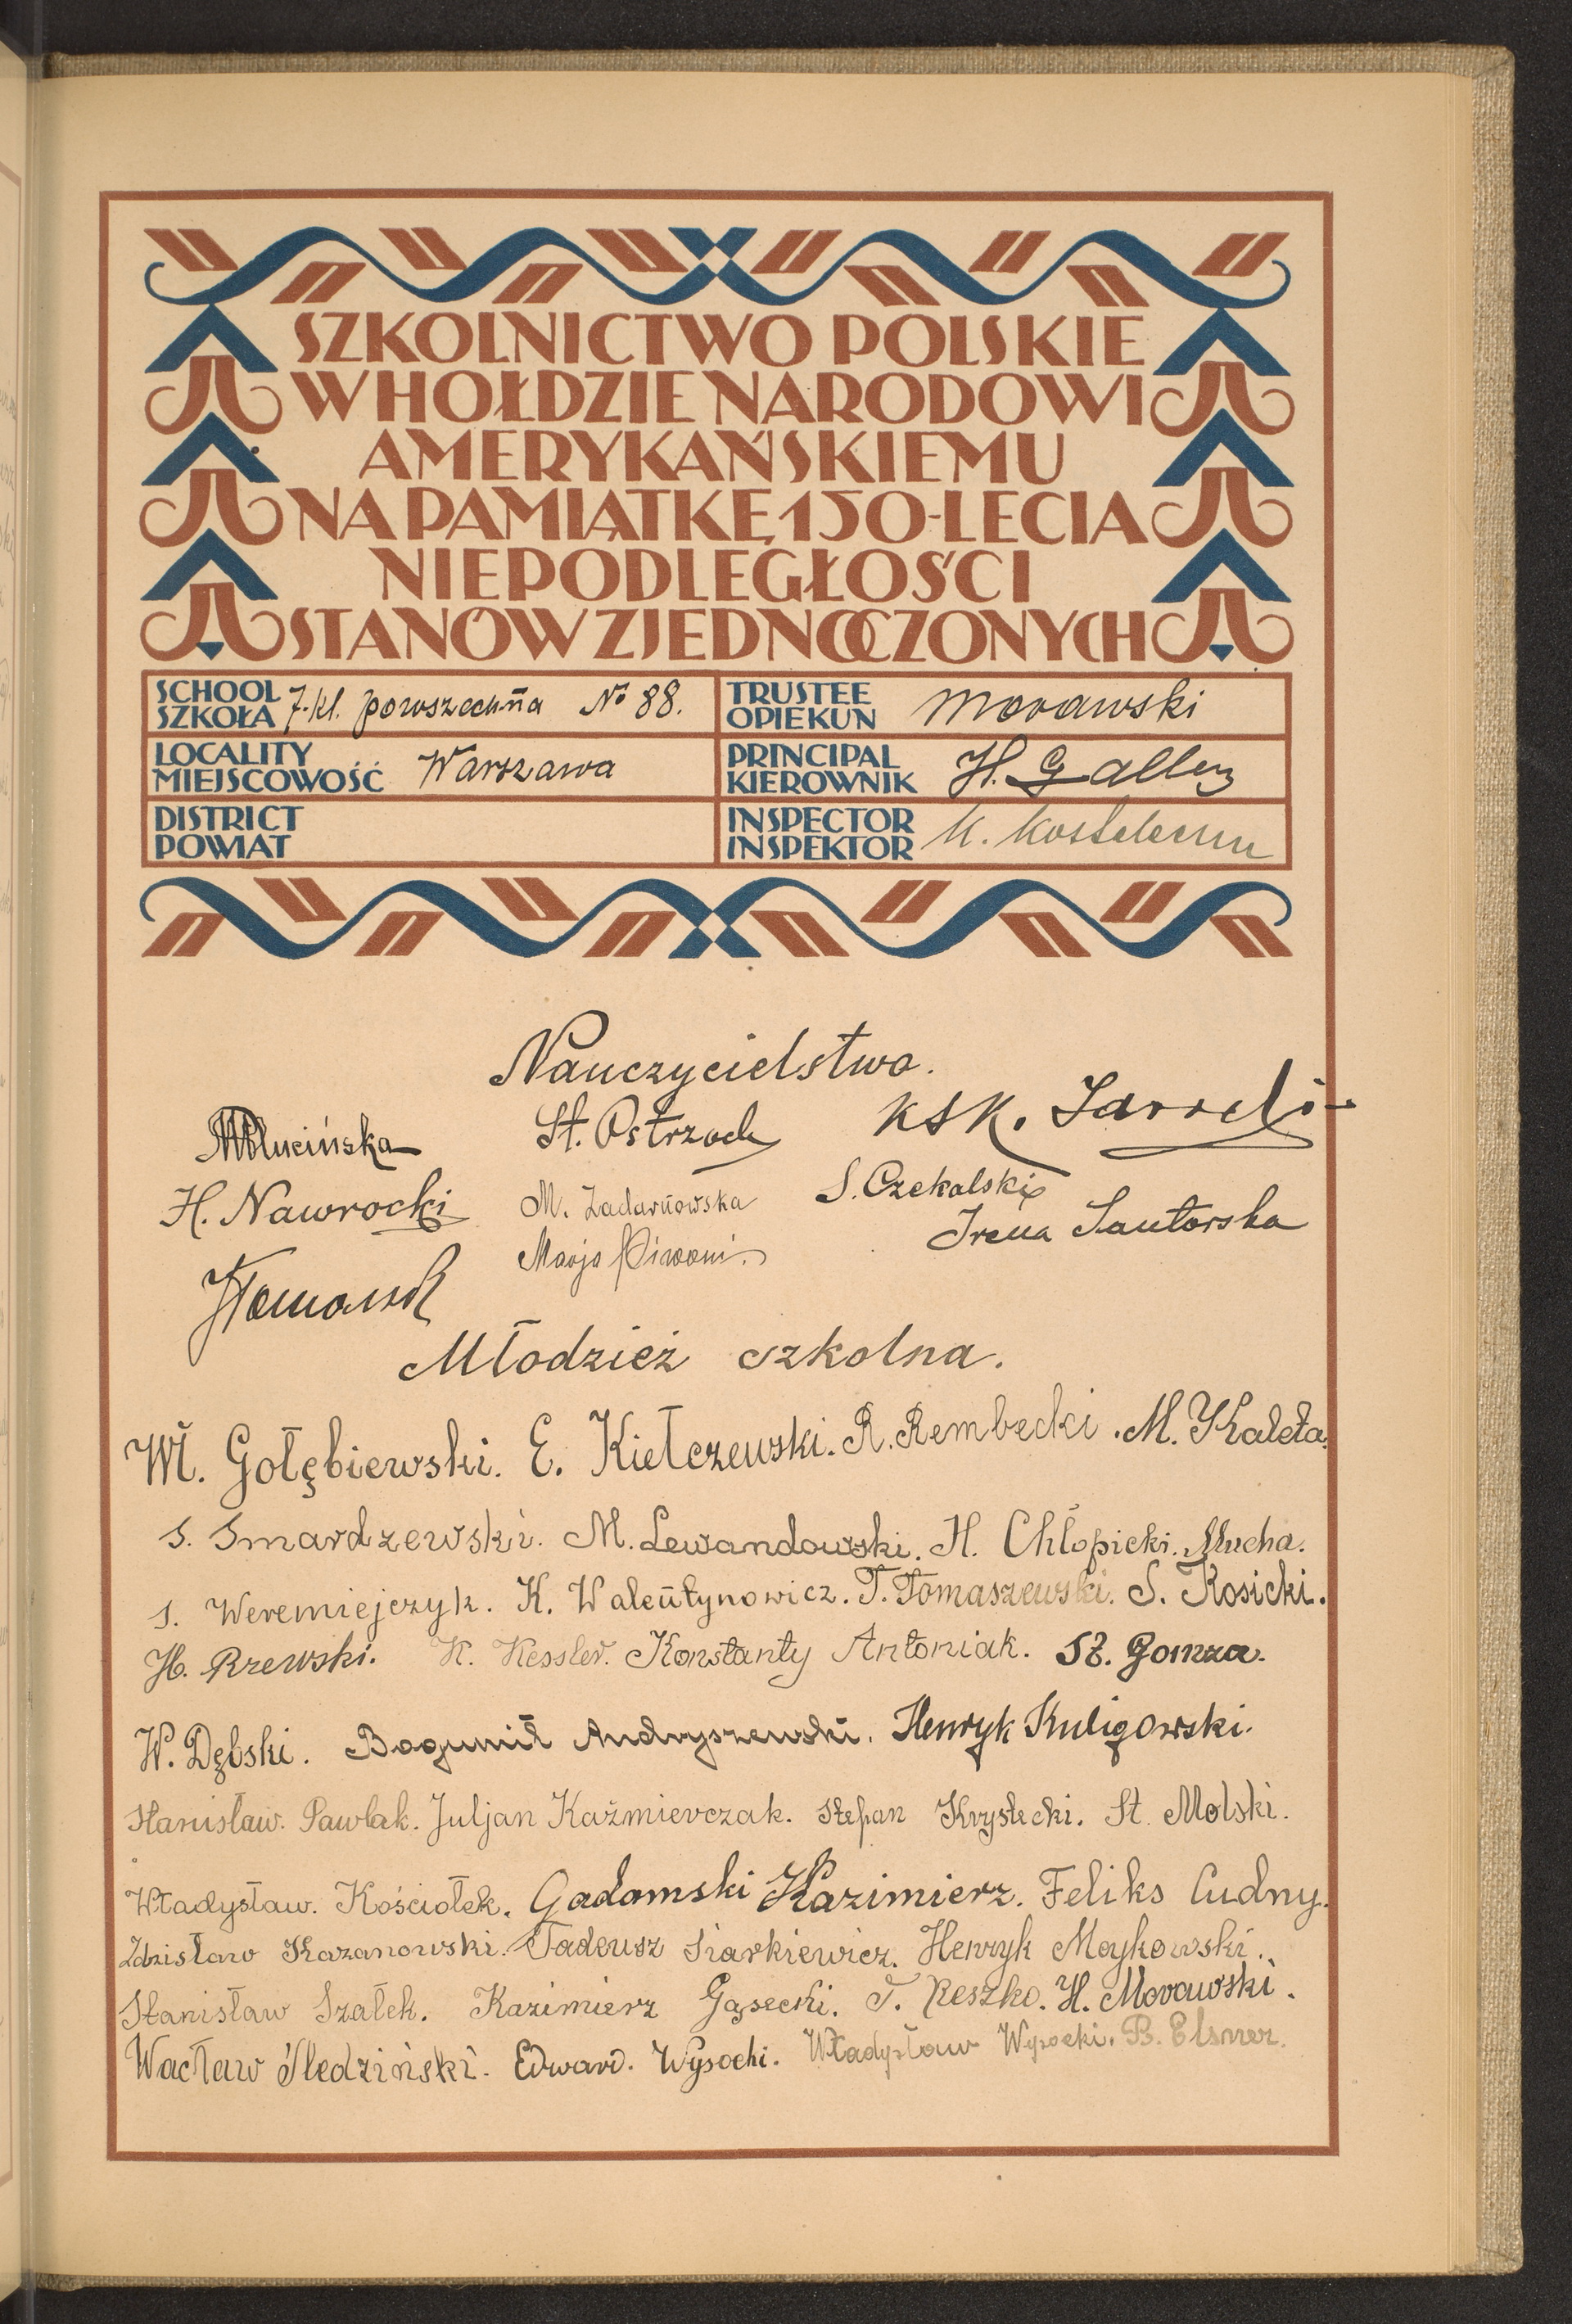 SZKOLNICTWO POLSKIE
W HOŁDZIE NARODOWI
AMERYKAŃSKIEMU
NA PAMIĄTKĘ 150-LECIA
NIEPODLEGŁOŚCI
STANÓW ZJEDNOCZONYCH
SCHOOL SZKOŁA 7-kl. powszechna No 88.
TRUSTEE OPIEKUN Morawski
LOCALITY MIEJSCOWOŚĆ Warszawa
PRINCIPAL KIEROWNIK H. Galley
DISTRICT POWIAT
INSPECTOR INSPEKTOR K.
Nauczycielstwo.
St. Ostrzod Ksk.
H. Nawrocki M. Zadarnowska S. Czekalski
Marja Irena Santorska
Młodzież szkolna.
Wł. Gołębiewski. E. Kiełczewski. R. Rembecki. M. Kaleta.
S. Smardzewski. M. Lewandowski. H. Chłopicki. Mucha.
S. Weremiejczyk. K. Walentynowicz. T. Tomaszewski. S. Kosicki.
H. Rzewski. K. Kessler. Konstanty Antoniak. St. Gomza.
W. Dębski. Bogumił Andryszewski. Henryk Kuligowski.
Stanisław. Pawlak. Juljan Kaźmierczak. Stefan Krystecki. St. Molski.
Władysław. Kościołek. Gadomski Kazimierz. Feliks Cudny.
Zdzisław Kazanowski. Tadeusz Siarkiewicz. Henryk Moykowski.
Stanisław Szałek. Kazimierz Gąsecki. T. Reszko. H. Morawski.
Wacław Śledziński. Edward. Wysocki. Władysław Wysocki. B. Elsner.